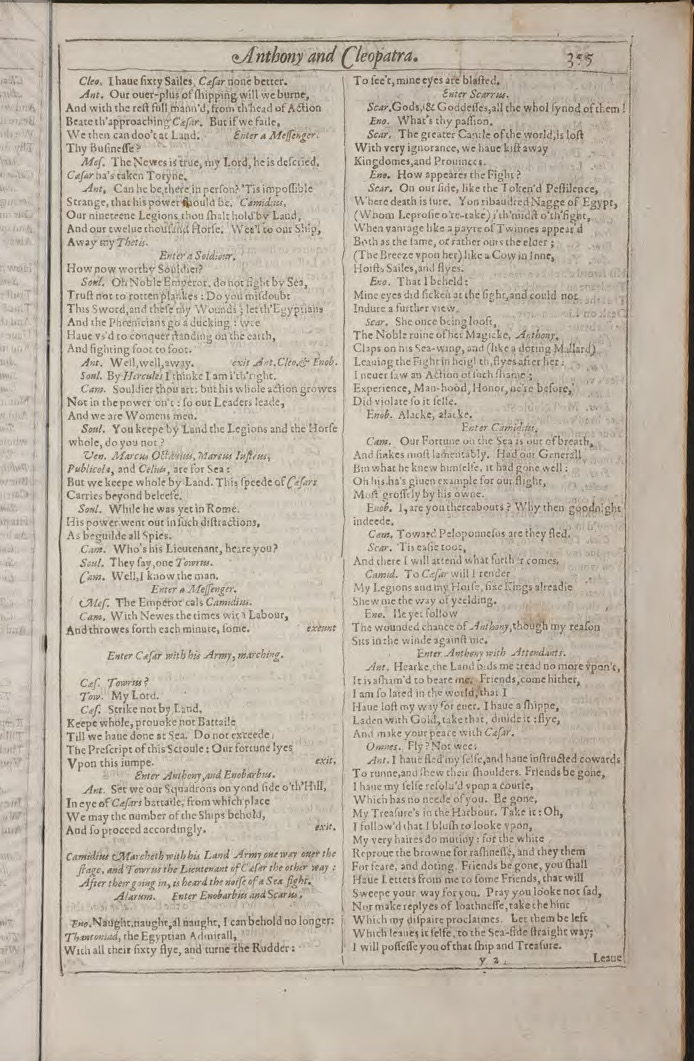 Anthony and Cleopatra. 355
Cleo. I haue sixty Sailes, Cæsar none better.
Ant. Our ouer-plus of shipping will we burne,
And with the rest full mann'd, from th'head of Action
Beate th'approaching Cæsar. But if we faile,
We then can doo't at Land. Enter a Messenger.
Thy Businesse?
Mes. The Newes is true, my Lord, he is descried,
Cæsar ha's taken Toryne.
Ant. Can he be there in person? 'Tis impossible
Strange, that his power should be. Camidius,
Our nineteene Legions thou shalt hold by Land,
And our twelue thousand Horse. Wee'l to our Ship,
Away my Thetis.
Enter a Soldiour.
How now worthy Souldier?
Soul. Oh Noble Emperor, do not fight by Sea,
Trust not to rotten plankes: Do you misdoubt
This Sword, and these my Wounds; let th'Egyptians
And the Phœnicians go a ducking: wee
Haue vs'd to conquer standing on the earth,
And fighting foot to foot.
Ant. Well, well, away. exit Ant. Cleo. & Enob.
Soul. By Hercules I thinke I am i'th'right.
Cam. Souldier thou art: but his whole action growes
Not in the power on't: so our Leaders leade,
And we are Womens men.
Soul. You keepe by Land the Legions and the Horse
whole, do you not?
Ven. Marcus Octauius, Marcus Iusteus,
Publicola, and Celius, are for Sea:
But we keepe whole by Land. This speede of Cæsars
Carries beyond beleefe.
Soul. While he was yet in Rome,
His power went out in such distractions,
As beguilde all Spies.
Cam. Who's his Lieutenant, heare you?
Soul. They say, one Towrus.
Cam. Well, I know the man.
Enter a Messenger.
Mes. The Emperor cals Camidius.
Cam. With Newes the times with Labour,
And throwes forth each minute, some. exeunt
Enter Cæsar with his Army, marching.
Cæs. Towrus?
Tow. My Lord.
Cæs. Strike not by Land,
Keepe whole, prouoke not Battaile
Till we haue done at Sea. Do not exceede
The Prescript of this Scroule: Our fortune lyes
Vpon this iumpe. exit.
Enter Anthony, and Enobarbus.
Ant. Set we our Squadrons on yond side o'th'Hill,
In eye of Cæsars battaile, from which place
We may the number of the Ships behold,
And so proceed accordingly. exit.
Camidius Marcheth with his Land Army one way ouer the
stage, and Towrus the Lieutenant of Cæsar the other way:
After their going in, is heard the noise of a Sea fight.
Alarum. Enter Enobarbus and Scarus.
Eno. Naught, naught, al naught, I can behold no longer:
Thantoniad, the Egyptian Admirall,
With all their sixty flye, and turne the Rudder:
To see't, mine eyes are blasted.
Enter Scarrus.
Scar. Gods, & Goddesses, all the whol synod of them!
Eno. What's thy passion.
Scar. The greater Cantle of the world, is lost
With very ignorance, we haue kist away
Kingdomes, and Prouinces.
Eno. How appeares the Fight?
Scar. On our side, like the Token'd Pestilence,
Where death is sure. Yon ribaudred Nagge of Egypt,
(Whom Leprosie o're-take) i'th'midst o'th'fight,
When vantage like a payre of Twinnes appear'd
Both as the same, or rather ours the elder;
(The Breeze vpon her) like a Cow in Iune,
Hoists Sailes, and flyes.
Eno. That I beheld:
Mine eyes did sicken at the sight, and could not
Indure a further view.
Scar. She once being looft,
The Noble ruine of her Magicke, Anthony,
Claps on his Sea-wing, and (like a doting Mallard)
Leauing the Fight in heighth, flyes after her:
I neuer saw an Action of such shame;
Experience, Man-hood, Honor, ne're before,
Did violate so it selfe.
Enob. Alacke, alacke.
Enter Camidius.
Cam. Our Fortune on the Sea is out of breath,
And sinkes most lamentably. Had our Generall
Bin what he knew himselfe, it had gone well:
Oh his ha's giuen example for our flight,
Most grossely by his owne.
Enob. I, are you thereabouts? Why then goodnight
indeede.
Cam. Toward Peloponnesus are they fled.
Scar. 'Tis easie toot,
And there I will attend what further comes.
Camid. To Cæsar will I render
My Legions and my Horse, sixe Kings alreadie
Shew me the way of yeelding.
Eno. Ile yet follow
The wounded chance of Anthony, though my reason
Sits in the winde against me.
Enter Anthony with Attendants.
Ant. Hearke, the Land bids me tread no more vpon't,
It is asham'd to beare me. Friends, come hither,
I am so lated in the world, that I
Haue lost my way for euer. I haue a shippe,
Laden with Gold, take that, diuide it: flye,
And make your peace with Cæsar.
Omnes. Fly? Not wee.
Ant. I haue fled my selfe, and haue instructed cowards
To runne, and shew their shoulders. Friends be gone,
I haue my selfe resolu'd vpon a course,
Which has no neede of you. Be gone,
My Treasure's in the Harbour. Take it: Oh,
I follow'd that I blush to looke vpon,
My very haires do mutiny: for the white
Reproue the browne for rashnesse, and they them
For feare, and doting. Friends be gone, you shall
Haue Letters from me to some Friends, that will
Sweepe your way for you. Pray you looke not sad,
Nor make replyes of loathnesse, take the hint
Which my dispaire proclaimes. Let them be left
Which leaues it selfe, to the Sea-side straight way;
I will possesse you of that ship and Treasure.
y 2 Leaue